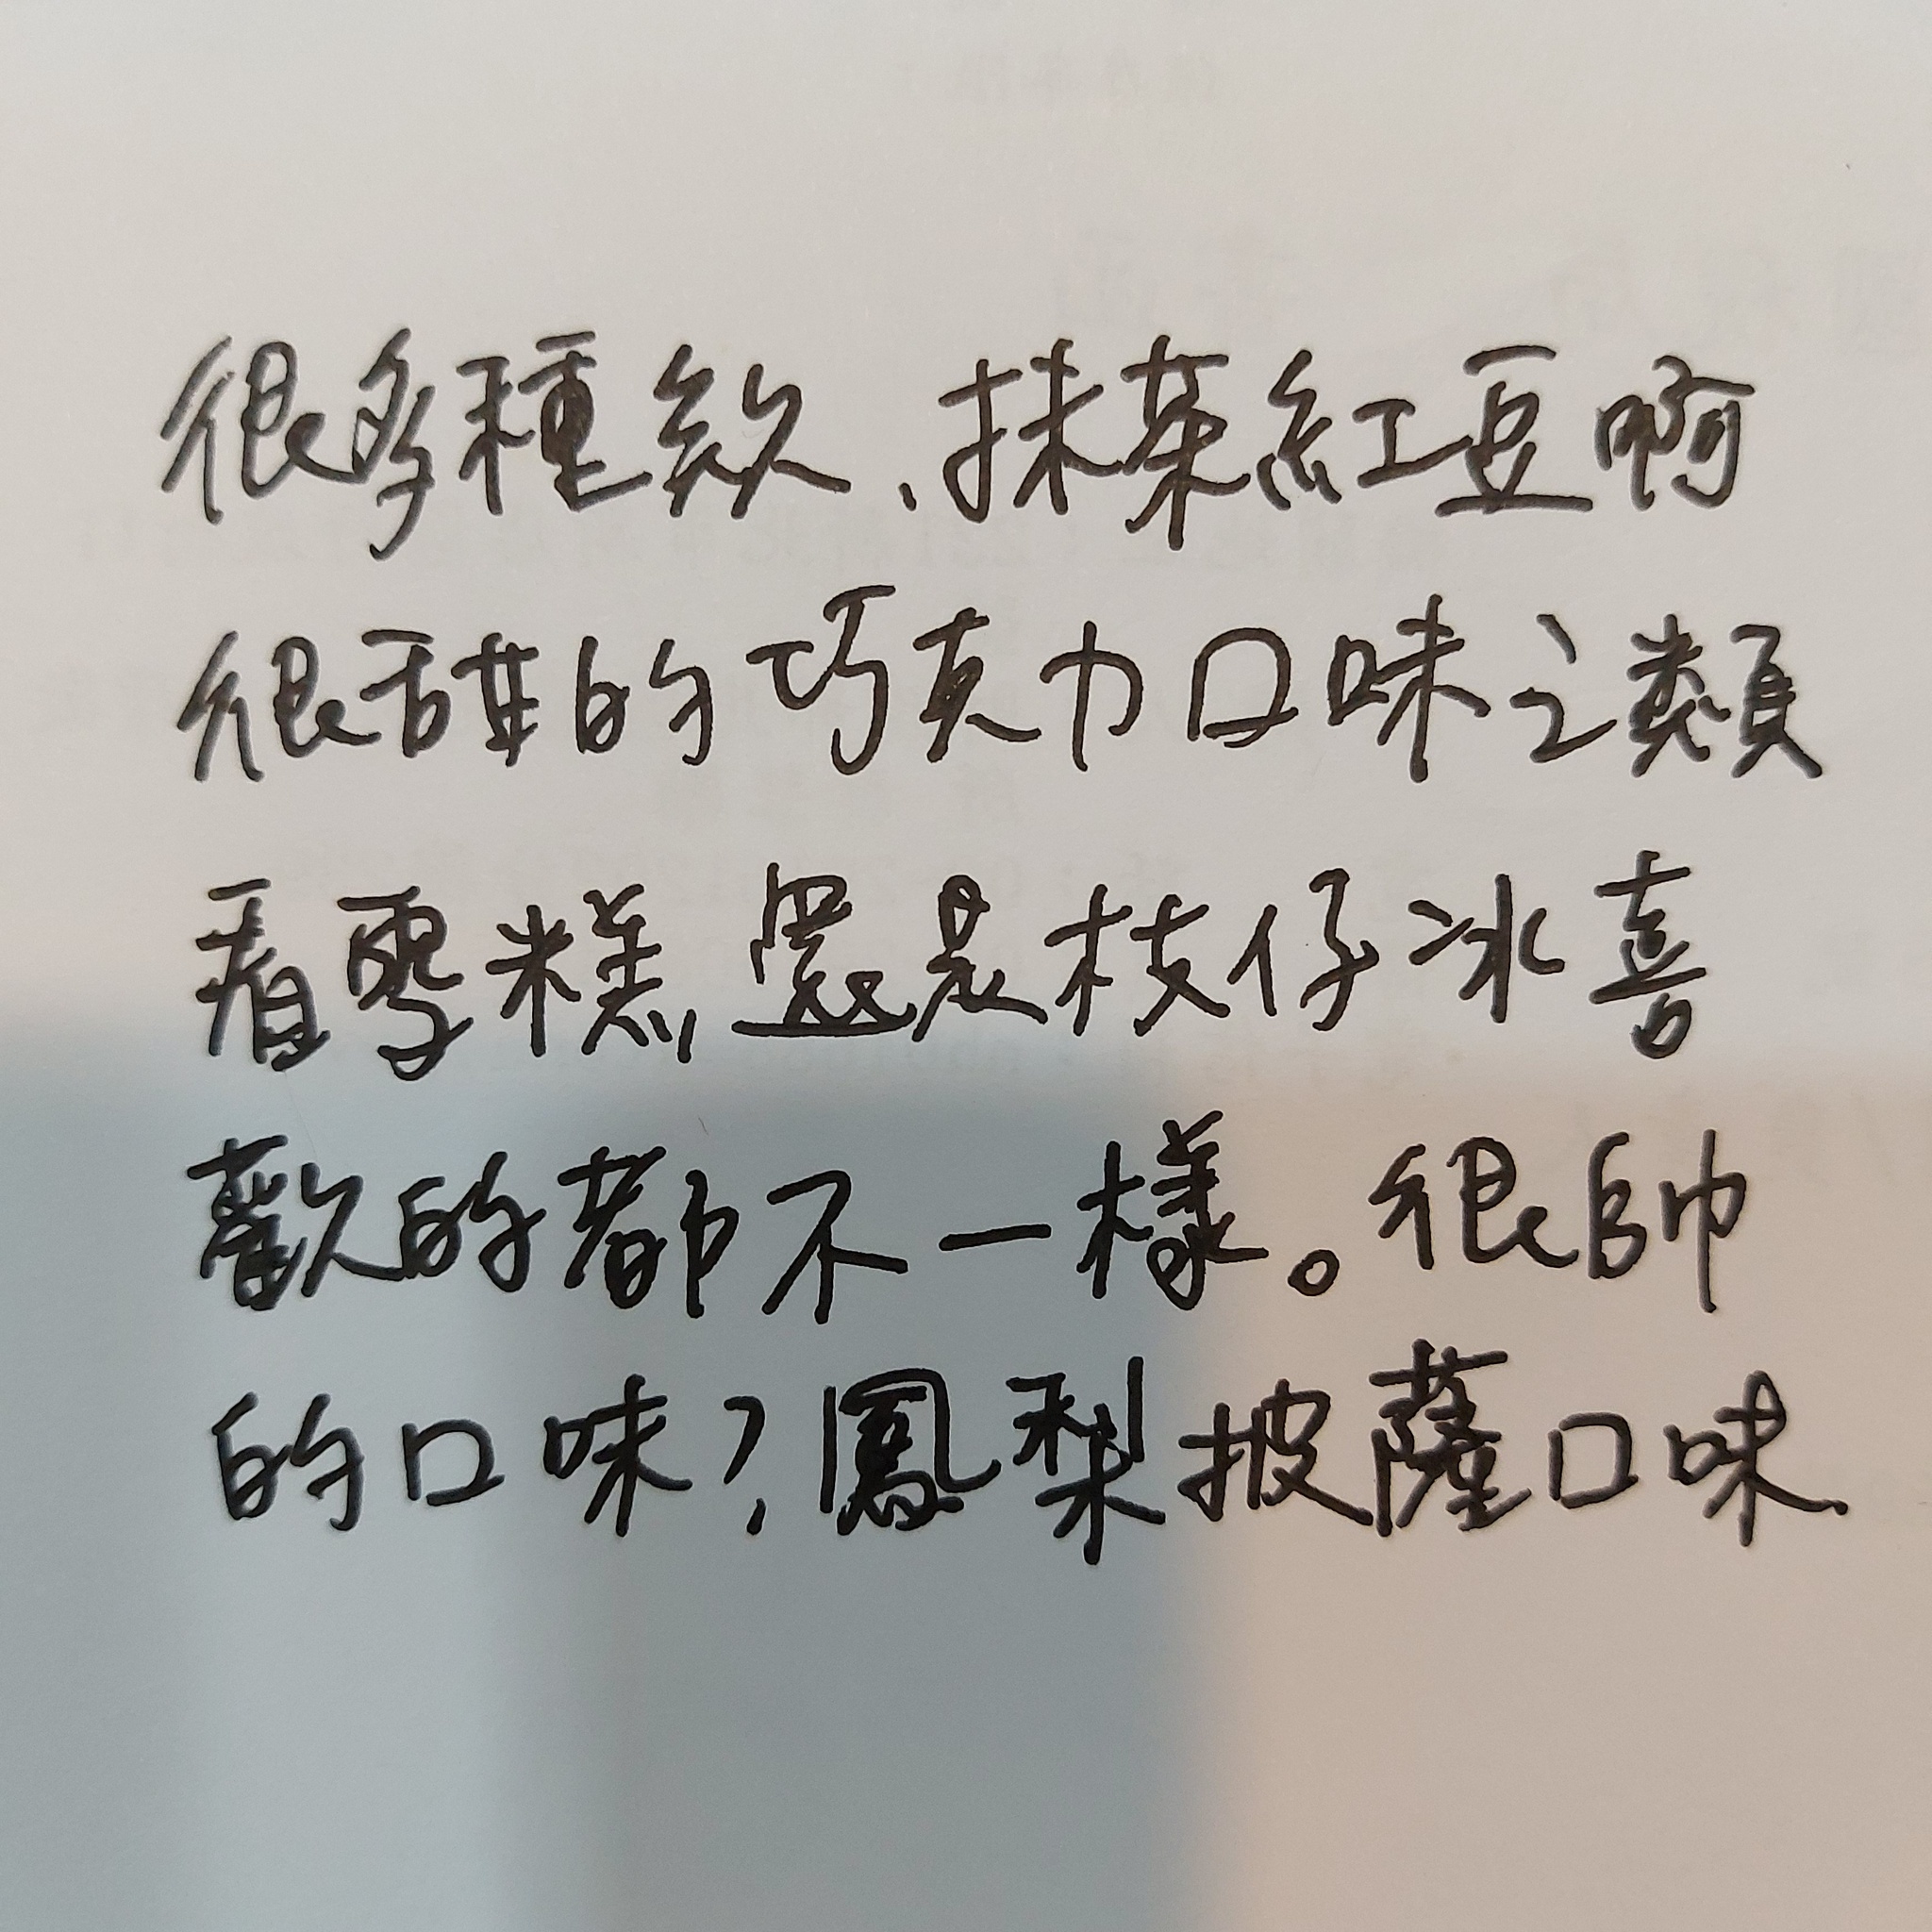 很多種欸、抹茶紅豆啊
很甜的巧克力口味之類
看雪糕,還是枝仔冰喜
歡的都不一樣。很帥
的口味?鳳梨披薩口味